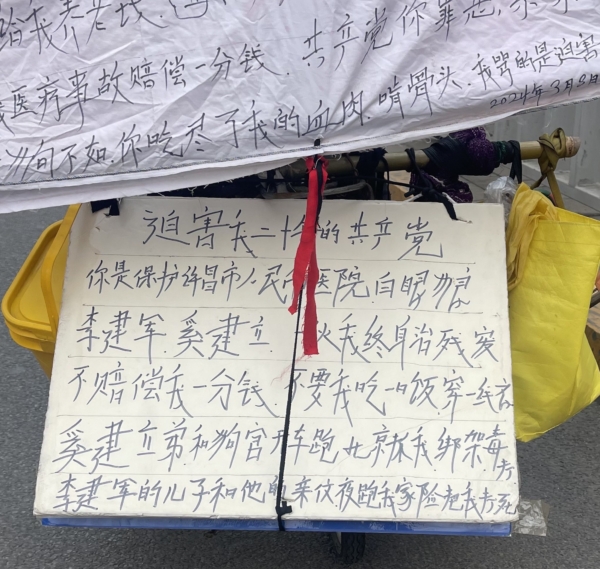 给我养老钱
医疗事故赔偿一分钱.共产党你罪恶
狗不如.你吃尽了我的血肉.啃骨头.我骂的是迫害
2024年3月8日
迫害我二十年的共产党
你是保护许昌市人民医院.白眼狼
李建军.奚建立.我终身治残安
不赔偿我一分钱.不要我吃一口饭穿一线衣
奚建立弟和狗官开车跑北京抓我绑架毒打
李建军的儿子和他的亲仗夜跑我家险把我打死